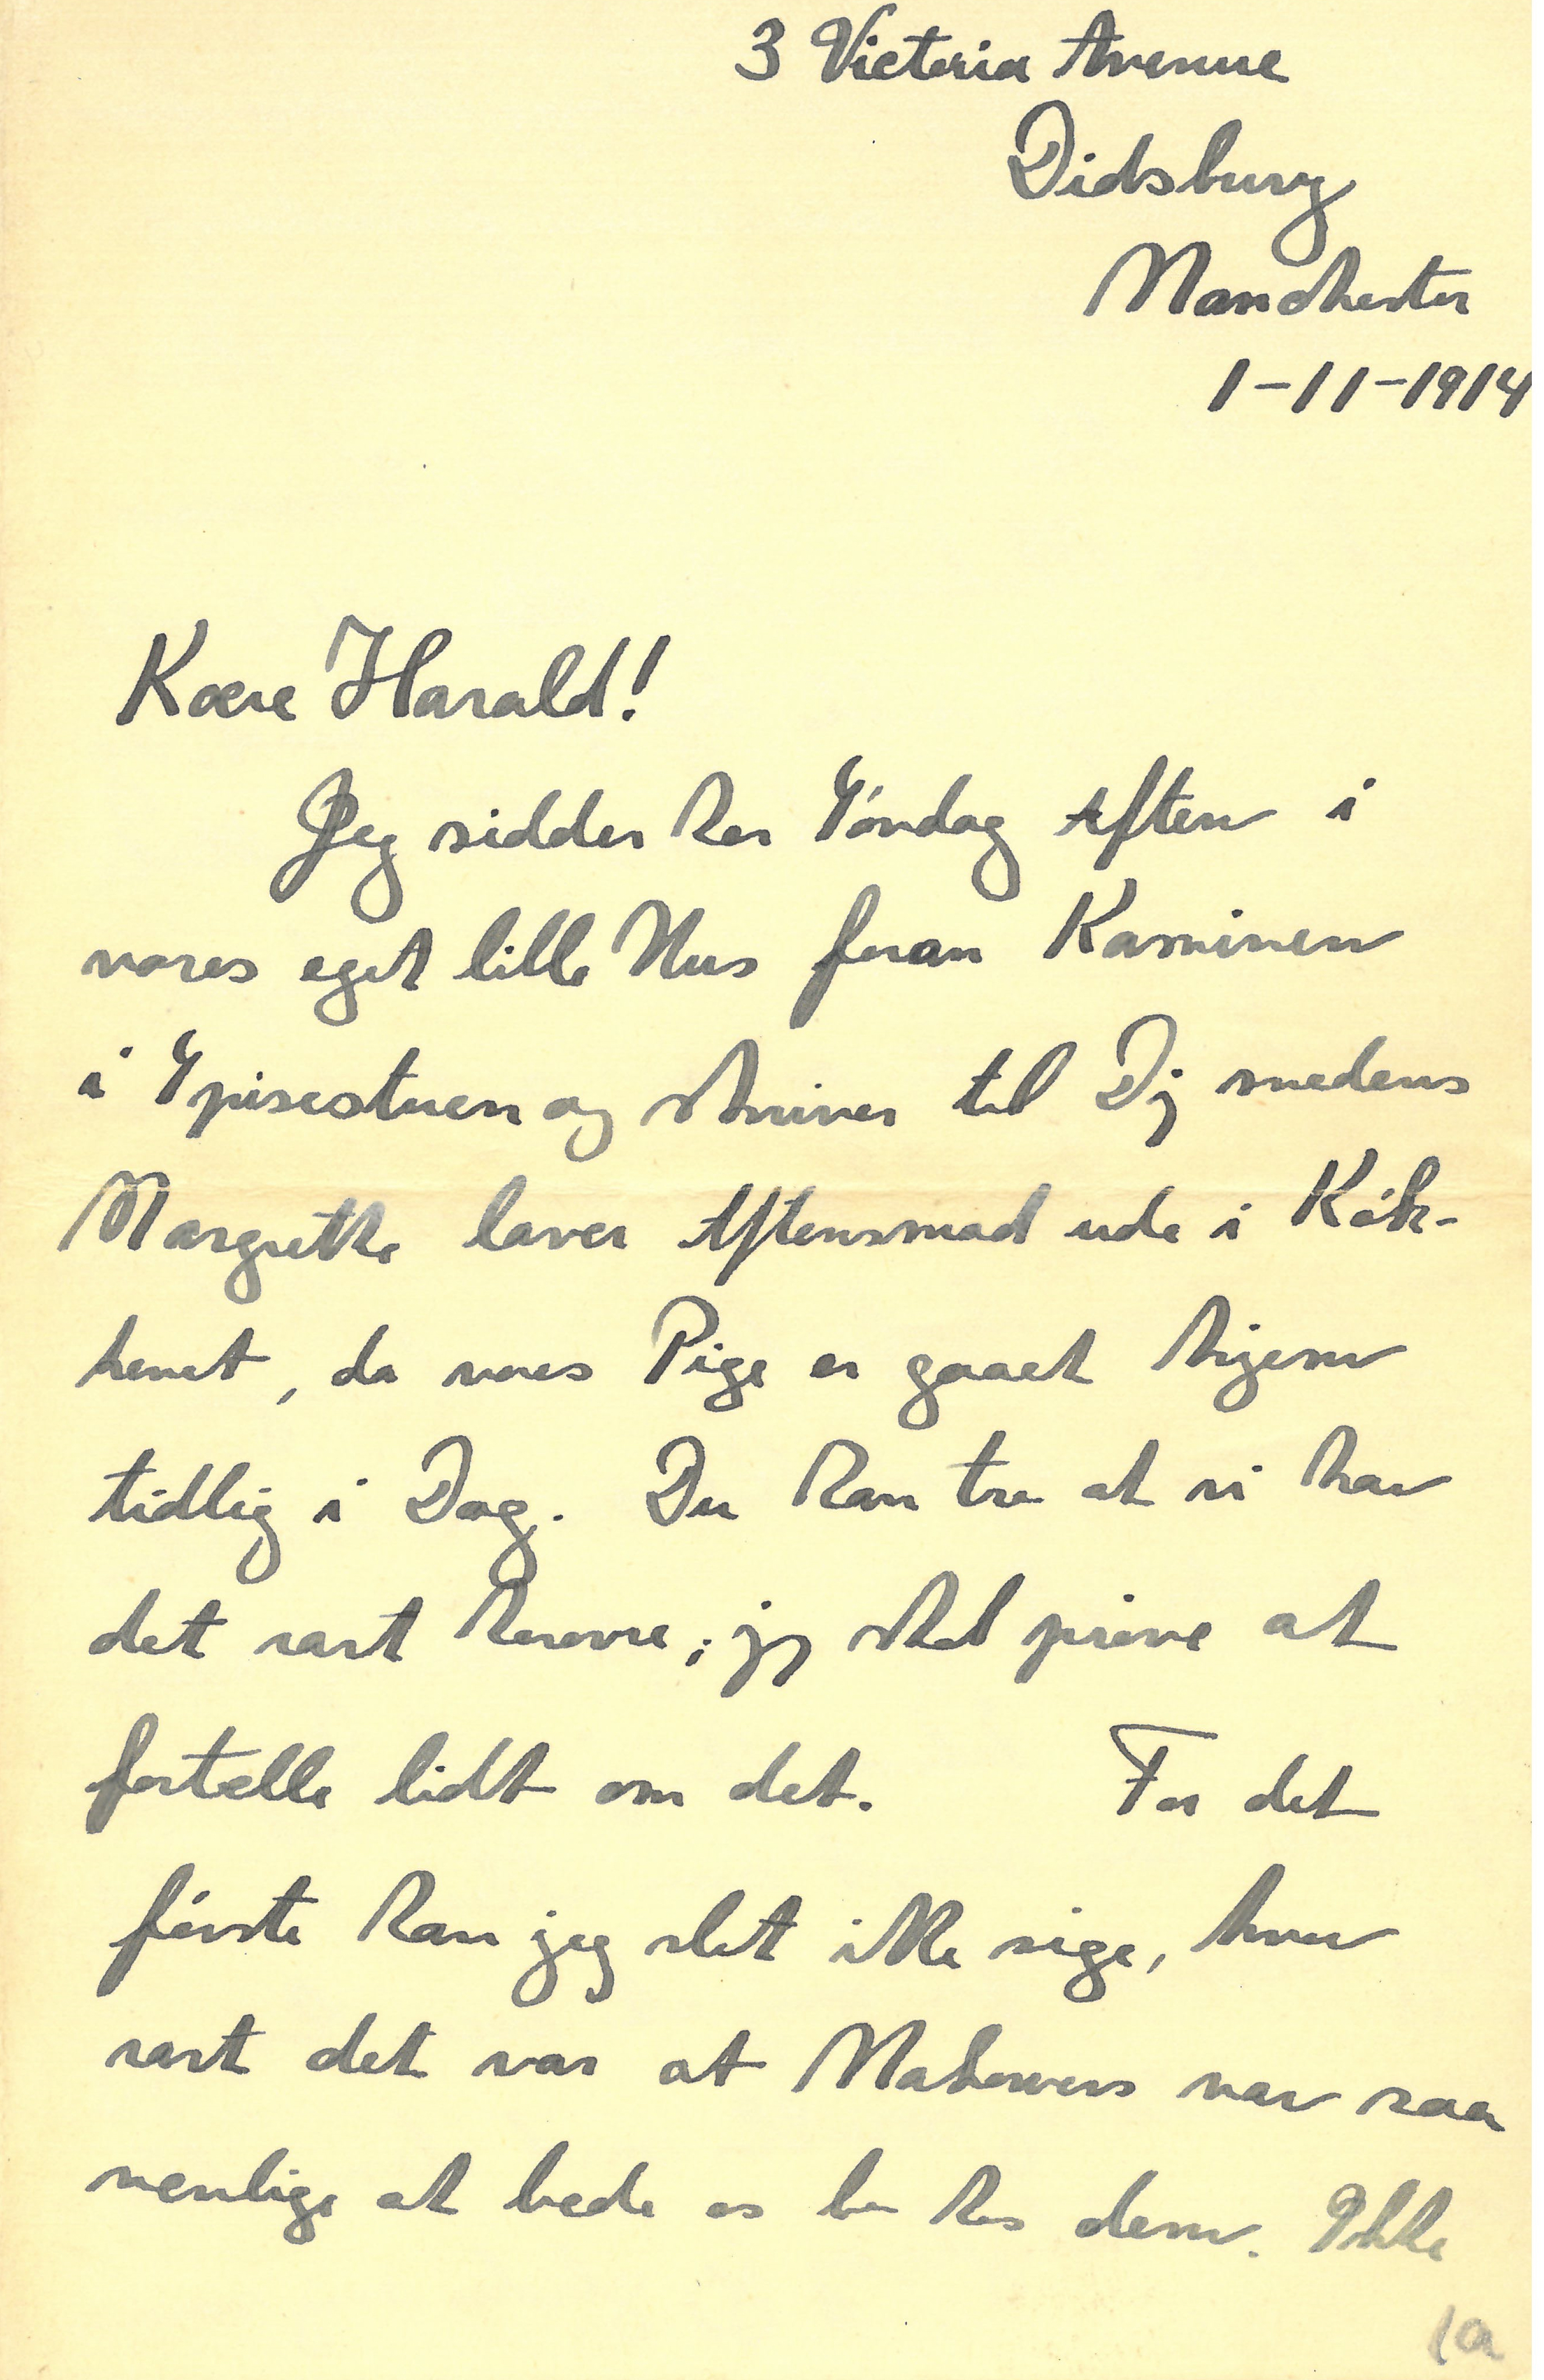 3 Victoria Avenue
Didsbury
Manchester
1-11-1914
Kære Harald!
Jeg sidder her Søndag Aften i
vores eget lille Hus foran Kaminen
i Spisestuen og skriver til Dig medens
Margrethe laver Aftensmad ude i Køk-
kenet, da vores Pige er gaaet hjem
tidlig i Dag. Du kan tro at vi har
det rart herovre; jeg skal prøve at
fortælle lidt om det. For det
første kan jeg slet ikke sige, hvor
rart det var at Makowers var saa
venlige at bede os bo hos dem. Ikke
1a